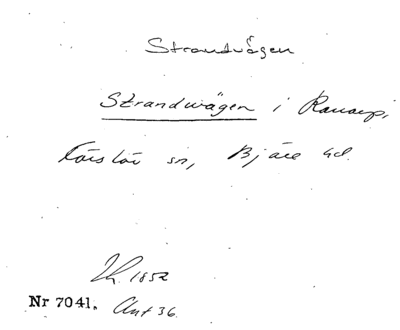 Strandvägen
Strandvägen i Ramsjö,
Förslöv sn, Bjäre hd.
1852
Nr 7041. Ant 36.